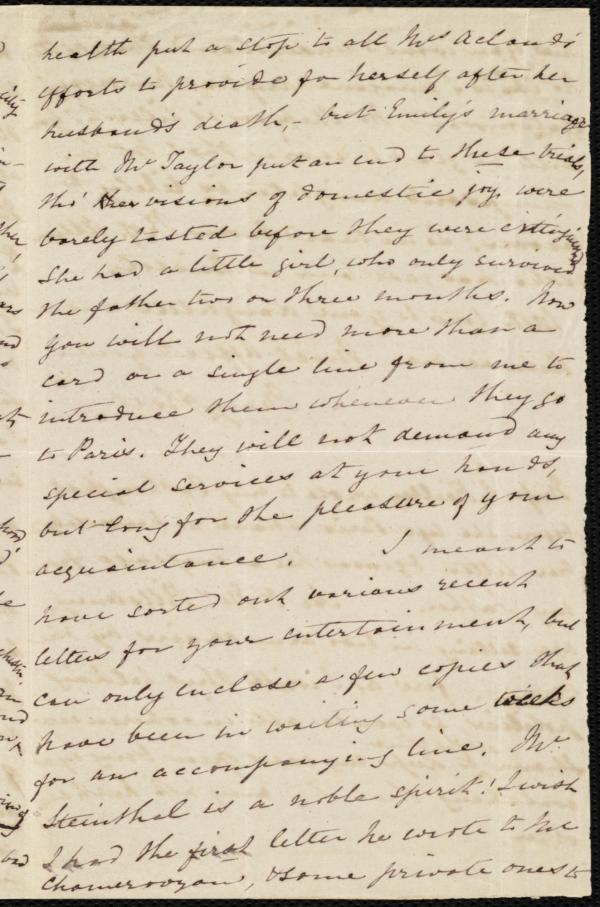 health put a stop to all Mrs Acland's
efforts to provide for herself after her
husband's death, – but Emily's marriage
with Mr Taylor put an end to these trials,
tho' her visions of domestic joy were
barely tasted before they were extinguished
She had a little girl, who only survived
the father two or three months. Now
you will not need more than a
card or a single line from me to
introduce them whenever they go
to Paris. They will not demand any
special services at your hands,
but long for the pleasure of your
acquaintance. I meant to
have sorted out various recent
letters for your entertainment, but
can only enclose a few copies that
have been in waiting some weeks
for an accompanying line. Mr
Steinthal is a noble spirit! I wish
I had the first letter he wrote to Mr
Chamerovzow, & some private ones to